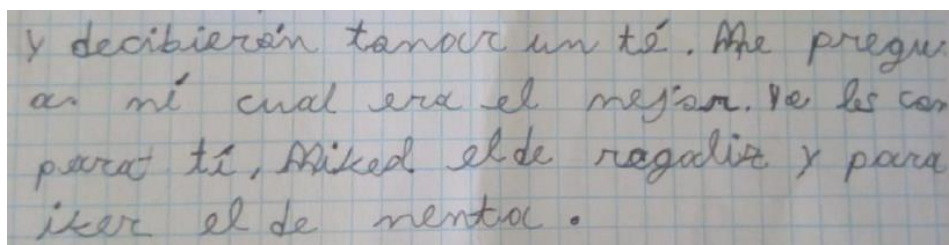 y decibierón tanar un té. Me pregu
a mí cual era el mejor. Yo les con
para tí, Mikel el de ragaliz y para
iker el de menta.